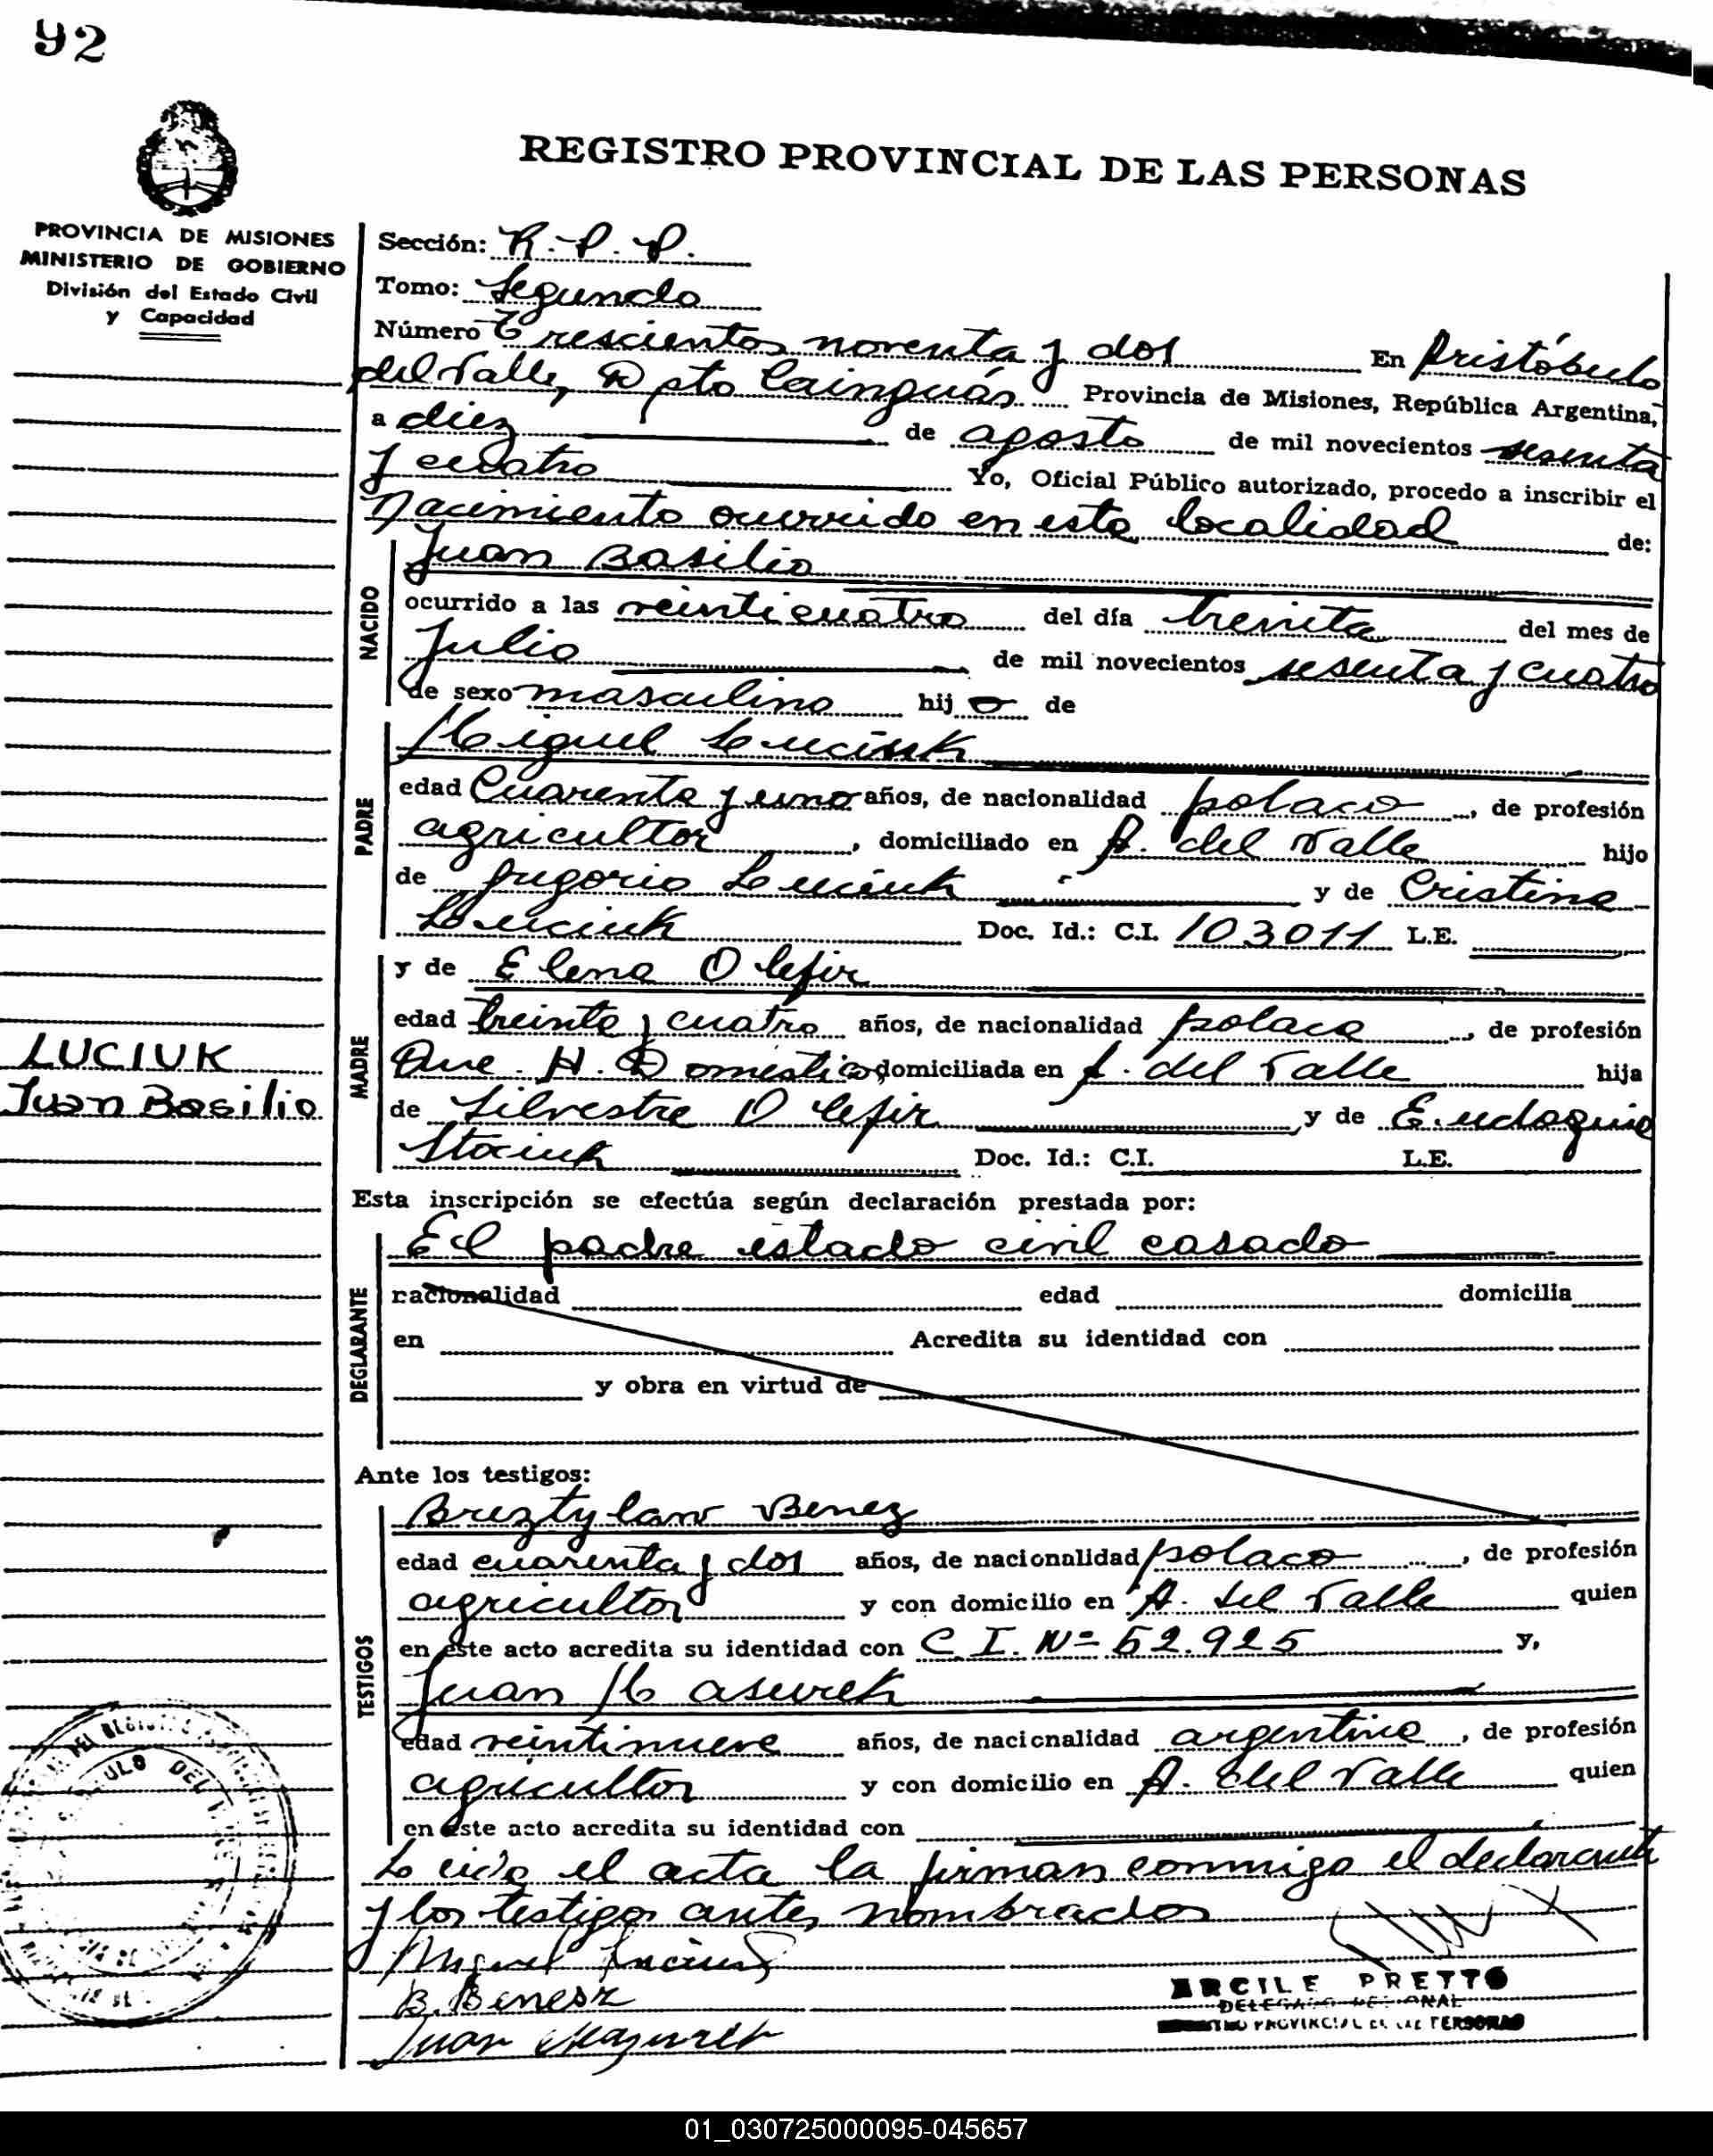 92
REGISTRO PROVINCIAL DE LAS PERSONAS
PROVINCIA DE MISIONES
MINISTERIO DE GOBIERNO
División del Estado Civil
y Capacidad
Sección: R.P.P.
Tomo: Segundo
Número Trescientos noventa y dos En Aristóbulo
del Valle, Dpto Cainguás Provincia de Misiones, República Argentina,
a diez de agosto de mil novecientos sesenta
y cuatro Yo, Oficial Público autorizado, procedo a inscribir el
Nacimiento ocurrido en esta localidad de:
NACIDO
Juan Basilio
ocurrido a las veinticuatro del día treinta del mes de
Julio de mil novecientos sesenta y cuatro
de sexo masculino hijo de
PADRE
Miguel Luciuk
edad Cuarenta y uno años, de nacionalidad polaco, de profesión
agricultor, domiciliado en A. del Valle hijo
de Gregorio Luciuk y de Cristina
Luciuk Doc. Id.: C.I. 103011 L.E.
MADRE
y de Elena Olefir
edad treinta y cuatro años, de nacionalidad polaca, de profesión
Que. H. Domesticos domiciliada en A. del Valle hija
de Silvestre Olefir y de Eudoquia
Staciuk Doc. Id.: C.I. L.E.
LUCIUK
Juan Basilio
Esta inscripción se efectúa según declaración prestada por:
DECLARANTE
El padre estado civil casado
nacionalidad edad domicilia
en Acredita su identidad con
y obra en virtud de
Ante los testigos:
TESTIGOS
Breztylaw Benez
edad cuarenta y dos años, de nacionalidad polaco, de profesión
agricultor y con domicilio en A. del Valle quien
en este acto acredita su identidad con C.I. Nº 52.925 y,
Juan Masurek
edad veintinueve años, de nacionalidad argentino, de profesión
agricultor y con domicilio en A. del Valle quien
en este acto acredita su identidad con
Leida el acta la firman conmigo el declarante
y los testigos antes nombrados
Miguel Luciuk
B. Benesz
Juan Mazurek
ARCILE PRETTO
DELEGADO
PROVINCIAL DE LAS PERSONAS
01_030725000095-045657